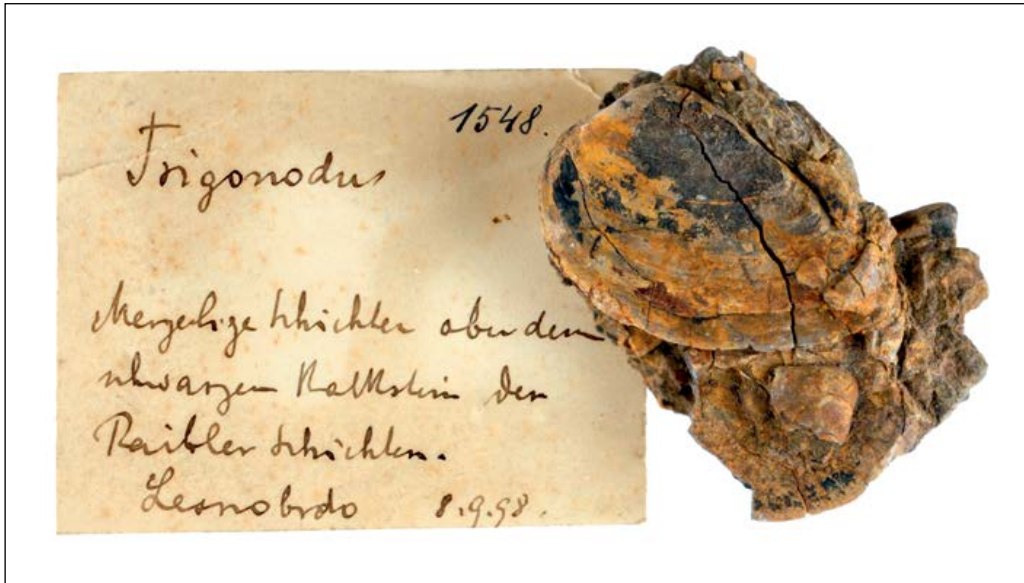 1548.
Trigonodus
Mergelige Schichten ober dem
schwarzen Kalkstein der
Raibler Schichten.
Lesnobrdo 8.9.98.